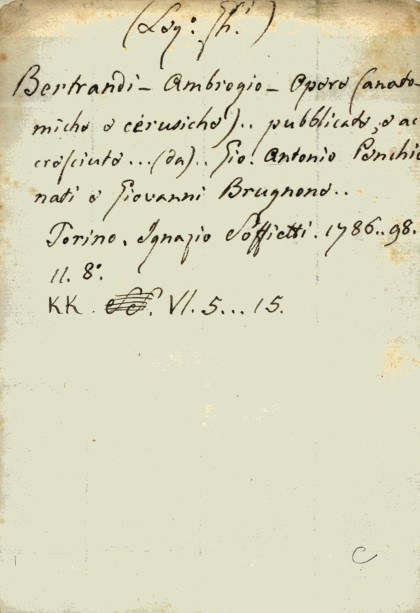 (Leg.º Gh.i)
Bertrandi - Ambrogio - Opere (anato-
miche e cerusiche).. pubblicate, e ac
cresciute...(da).. Gio. Antonio Penchie
nati e Giovanni Brugnone..
Torino. Ignazio Soffietti. 1786..98.
11. 8.º
KK. VI. 5... 15.
C